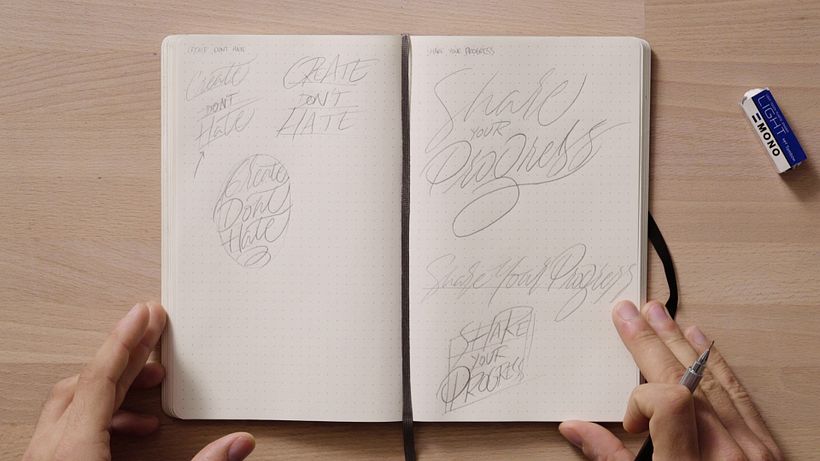 CREATE DON'T HATE
Create
DON'T
Hate
CREATE
DON'T
HATE
Create
Don't
Hate
SHARE YOUR PROGRESS
Share
YOUR
Progress
Share Your Progress
SHARE
YOUR
PROGRESS
LIGHT
MONO